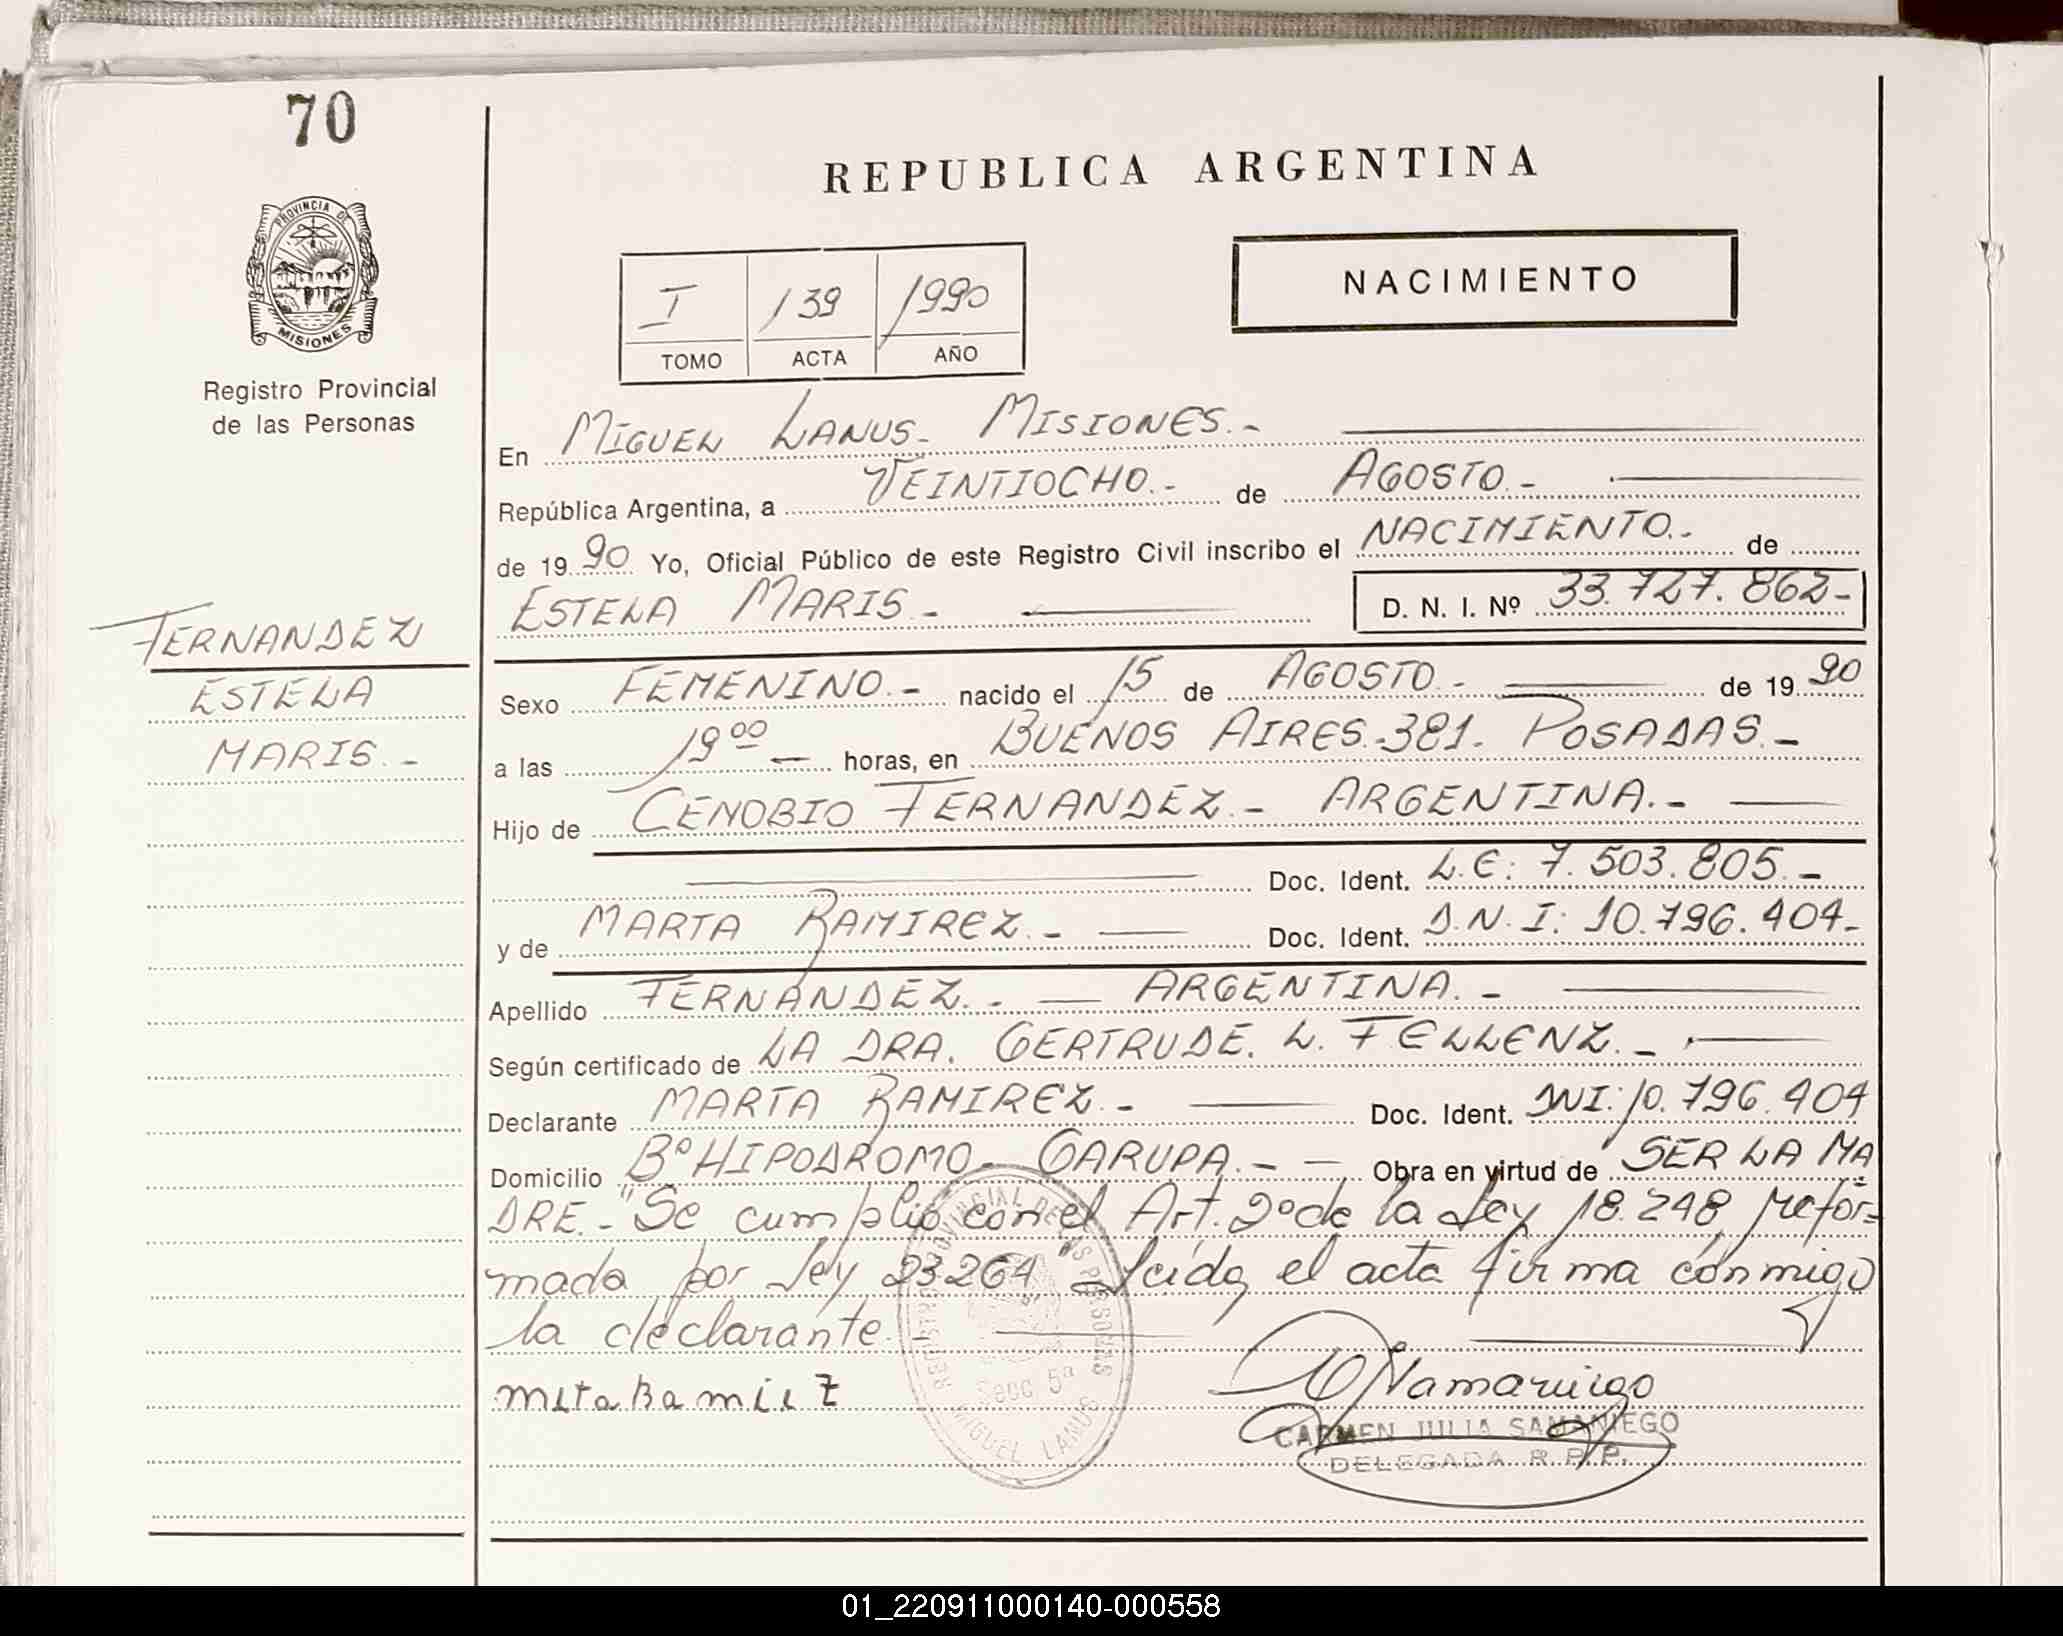 70
REPUBLICA ARGENTINA
PROVINCIA DE
MISIONES
Registro Provincial
de las Personas
NACIMIENTO
I 139 1990
TOMO ACTA AÑO
En MIGUEL LANUS - MISIONES.-
República Argentina, a VEINTIOCHO.- de AGOSTO.-
de 1990 Yo, Oficial Público de este Registro Civil inscribo el NACIMIENTO.- de
ESTELA MARIS.- D. N. I. Nº 33.727.862-
FERNANDEZ
ESTELA
MARIS.-
Sexo FEMENINO.- nacido el 15 de AGOSTO.- de 1990
a las 19 00 horas, en BUENOS AIRES.-381- POSADAS.-
Hijo de CENOBIO FERNANDEZ.- ARGENTINA.-
Doc. Ident. L.E: 7.503.805.-
y de MARTA RAMIREZ.- Doc. Ident. D.N.I: 10.796.404-
Apellido FERNANDEZ.- ARGENTINA.-
Según certificado de LA DRA. GERTRUDE. L. FELLENZ.-
Declarante MARTA RAMIREZ.- Doc. Ident. DNI: 10.796.404
Domicilio Bº HIPODROMO - GARUPA.- - Obra en virtud de SER LA MA
DRE.- "Se cumplió con el Art. 2º de la Ley 18.248, refor=
mada por Ley 23264" Leída el acta firma conmigo
la declarante.
REGISTRO PROVINCIAL DE LAS PERSONAS
Secc 5ª
MIGUEL LANUS
CARMEN JULIA SAMANIEGO
DELEGADA R.P.P.
01_220911000140-000558